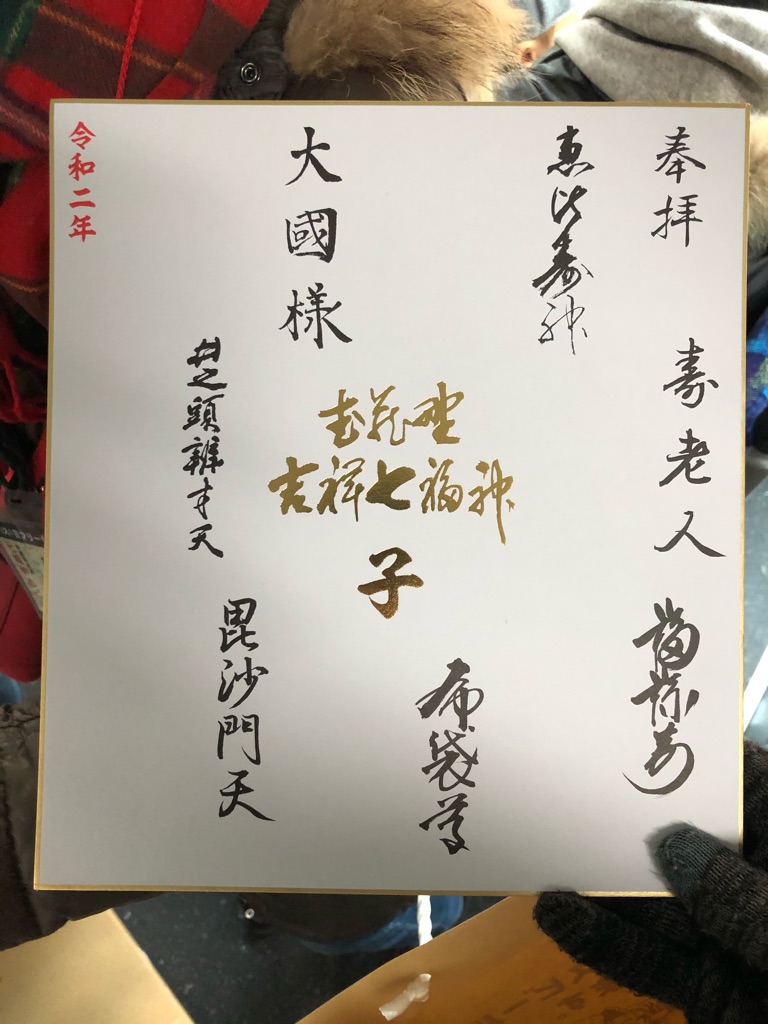 奉拝
寿老人
福禄寿
恵比寿神
布袋尊
武蔵野
吉祥七福神
子
大國様
毘沙門天
井之頭辨才天
令和二年